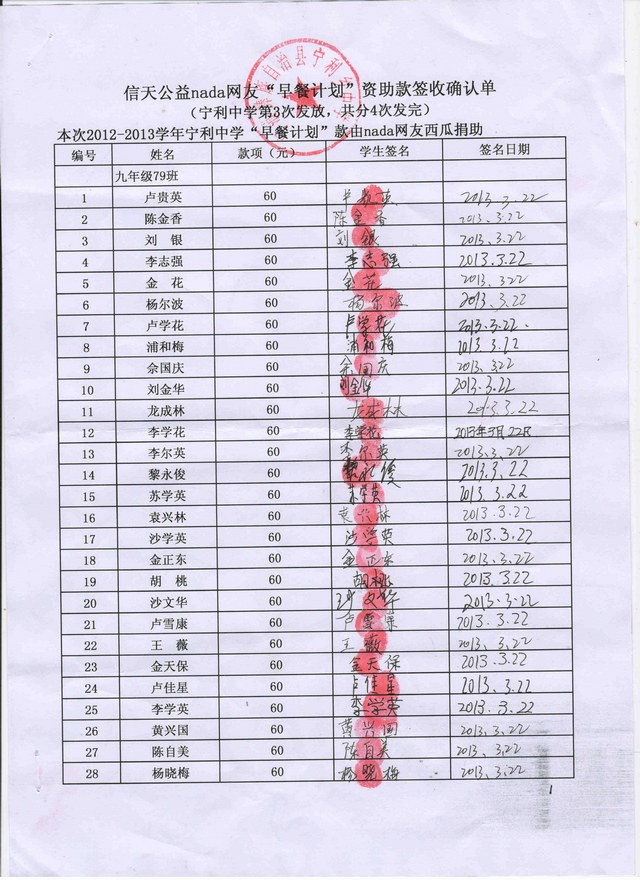 自治县宁利
信天公益nada网友“早餐计划”资助款签收确认单
（宁利中学第3次发放，共分4次发完）
本次2012-2013学年宁利中学“早餐计划”款由nada网友西瓜捐助
编号 姓名 款项（元） 学生签名 签名日期
九年级79班
1 卢贵英 60 卢贵英 2013.3.22
2 陈金香 60 陈金香 2013.3.22
3 刘 银 60 刘银 2013.3.22
4 李志强 60 李志强 2013.3.22
5 金 花 60 金花 2013.322
6 杨尔波 60 杨尔波 2013.3.22
7 卢学花 60 卢学花 2013.3.22.
8 浦和梅 60 浦和梅 2013.3.22
9 余国庆 60 余国庆 2013.322
10 刘金华 60 刘金华 2013.3.22
11 龙成林 60 龙成林 2013.3.22
12 李学花 60 李学花 2013年3月22日
13 李尔英 60 李尔英 2013.3.22
14 黎永俊 60 黎永俊 2013.3.22
15 苏学英 60 苏学英 2013.3.22
16 袁兴林 60 袁兴林 2013.3.22
17 沙学英 60 沙学英 2013.3.22
18 金正东 60 金正东 2013.3.22
19 胡 桃 60 胡桃 2013.3.22
20 沙文华 60 沙文华 2013.3.22
21 卢雪康 60 卢雪康 2013.3.22
22 王 薇 60 王薇 2013.3.22
23 金天保 60 金天保 2013.3.22
24 卢佳星 60 卢佳星 2013.3.22
25 李学英 60 李学英 2013.3.22
26 黄兴国 60 黄兴国 2013.3.22
27 陈自美 60 陈自美 2013.3.22
28 杨晓梅 60 杨晓梅 2013.3.22
1